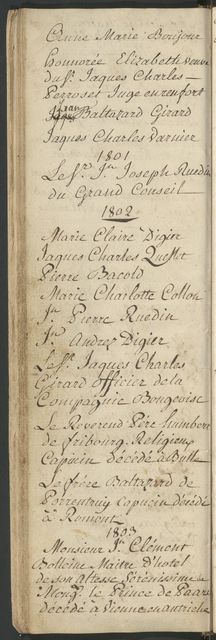 Anne Marie Boujour
honnorée Elizabeth veuve
du Sr. Jaques Charles
Perroset Juge en renfort
franç
Baltazard Girard
Jaques Charles Varnier
1801
Le Sr. Jn. Joseph Ruedin
du Grand Conseil
1802
Marie Claire Digier
Jaques Charles Quellet
Pierre Bacold
Marie Charlotte Collon
Jn. Pierre Ruedin
Jn. Andrez Digier
Le Sr. Jaques Charles
Girard officier de la
Compagnie Bourgoise
Le Reverend Père humbert
de fribourg. Religieux
Capucin décédé à Bulle
Le frère Baltazard de
Porrentruy capucin décédé
à Romont
1803
Monsieur Jn. Clément
Bolleine Maitre d'hotel
de son altesse Sérénissime
Mong. le Prince de Paar
décédé à Vienne en autriche